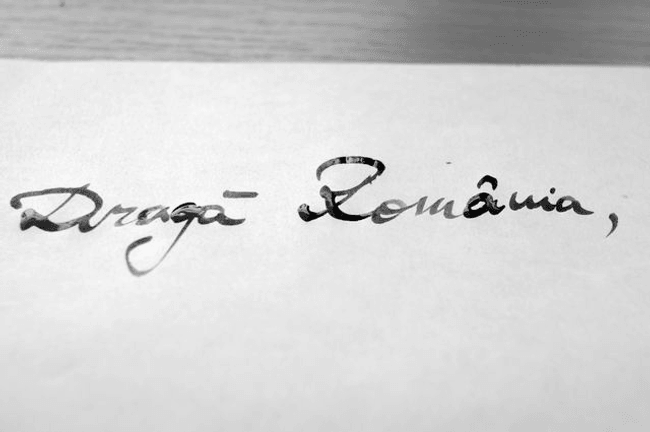 Dragă România,